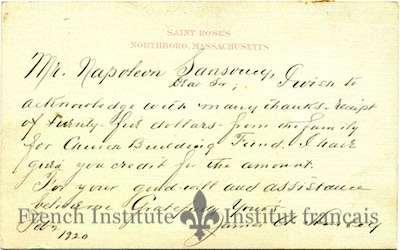 SAINT ROSE'S
NORTHBORO, MASSACHUSETTS
Mr. Napoleon Sansoucy,
Dear Sir; I wish to
acknowledge with many thanks receipt
of twenty-five dollars from the family
for Church Building Fund. I have
given you credit for the amount.
For your good will and assistance
believe me Gratefully Yours
James
1920
French Institute Institut français